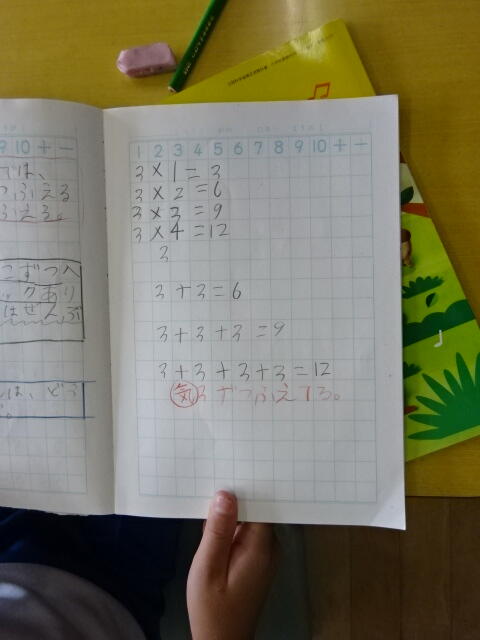 9 10 + -
は、
ふえる
ふえる。
こずつ入
あり
はぜんぶ
は、どう
1 2 3 4 5 6 7 8 9 10 + -
3 × 1 = 3
3 × 2 = 6
3 × 3 = 9
3 × 4 = 12
3
3 + 3 = 6
3 + 3 + 3 = 9
3 + 3 + 3 + 3 = 12
気 3ずつふえてる。